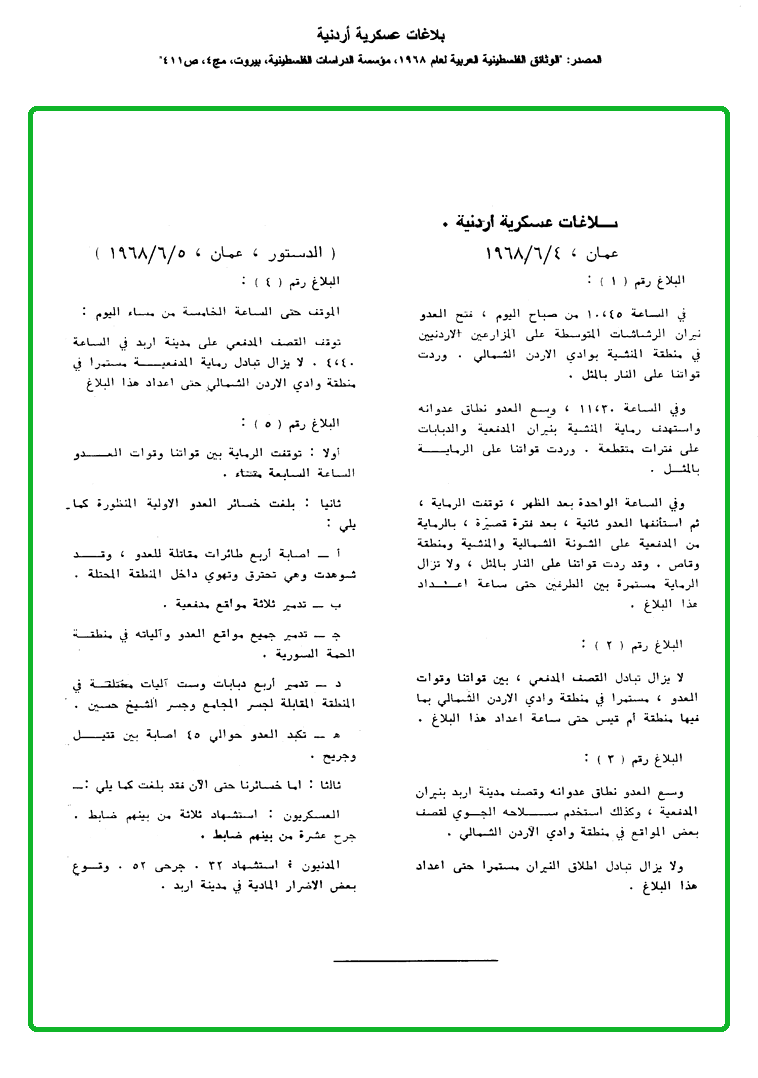 بلاغات عسكرية أردنية
المصدر: "الوثائق الفلسطينية العربية لعام ١٩٦٨، مؤسسة الدراسات الفلسطينية، بيروت، مج٤، ص٤١١"
بلاغات عسكرية أردنية .
عمان ، ١٩٦٨/٦/٤
البلاغ رقم ( ١ ) :
في الساعة ١٠،٤٥ من صباح اليوم ، فتح العدو
نيران الرشاشات المتوسطة على المزارعين الاردنيين
في منطقة المنشية بوادي الاردن الشمالي . وردت
قواتنا على النار بالمثل .
وفي الساعة ١١،٣٠ ، وسع العدو نطاق عدوانه
واستهدف رماية المنشية بنيران المدفعية والدبابات
على فترات متقطعة . وردت قواتنا على الرماية
بالمثل .
وفي الساعة الواحدة بعد الظهر ، توقفت الرماية ،
ثم استأنفها العدو ثانية ، بعد فترة قصيرة ، بالرماية
من المدفعية على الشونة الشمالية والمنشية ومنطقة
وقاص . وقد ردت قواتنا على النار بالمثل ، ولا تزال
الرماية مستمرة بين الطرفين حتى ساعة اعداد
هذا البلاغ .
البلاغ رقم ( ٢ ) :
لا يزال تبادل القصف المدفعي ، بين قواتنا وقوات
العدو ، مستمرا في منطقة وادي الاردن الشمالي بما
فيها منطقة أم قيس حتى ساعة اعداد هذا البلاغ .
البلاغ رقم ( ٣ ) :
وسع العدو نطاق عدوانه وقصف مدينة اربد بنيران
المدفعية ، وكذلك استخدم سلاحه الجوي لقصف
بعض المواقع في منطقة وادي الأردن الشمالي .
ولا يزال تبادل اطلاق النيران مستمرا حتى اعداد
هذا البلاغ .
( الدستور ، عمان ، ١٩٦٨/٦/٥ )
البلاغ رقم ( ٤ ) :
الموقف حتى الساعة الخامسة من مساء اليوم :
توقف القصف المدفعي على مدينة اربد في الساعة
٤،٤٠ . لا يزال تبادل رماية المدفعية مستمرا في
منطقة وادي الأردن الشمالي حتى اعداد هذا البلاغ
البلاغ رقم ( ٥ ) :
أولا : توقفت الرماية بين قواتنا وقوات العدو
الساعة السابعة مساء .
ثانيا : بلغت خسائر العدو الاولية المنظورة كما
يلي :
أ ــ اصابة أربع طائرات مقاتلة للعدو ، وقد
شوهدت وهي تحترق وتهوي داخل المنطقة المحتلة .
ب ــ تدمير ثلاثة مواقع مدفعية .
ج ــ تدمير جميع مواقع العدو وآلياته في منطقة
الحمة السورية .
د ــ تدمير أربع دبابات وست آليات مختلفة في
المنطقة المقابلة لجسر المجامع وجسر الشيخ حسين .
ه ــ تكبد العدو حوالي ٤٥ اصابة بين قتيل
وجريح .
ثالثا : اما خسائرنا حتى الآن فقد بلغت كما يلي :ــ
العسكريون : استشهاد ثلاثة من بينهم ضابط .
جرح عشرة من بينهم ضابط .
المدنيون : استشهاد ٣٢ . جرحى ٥٢ . وقوع
بعض الاضرار المادية في مدينة اربد .